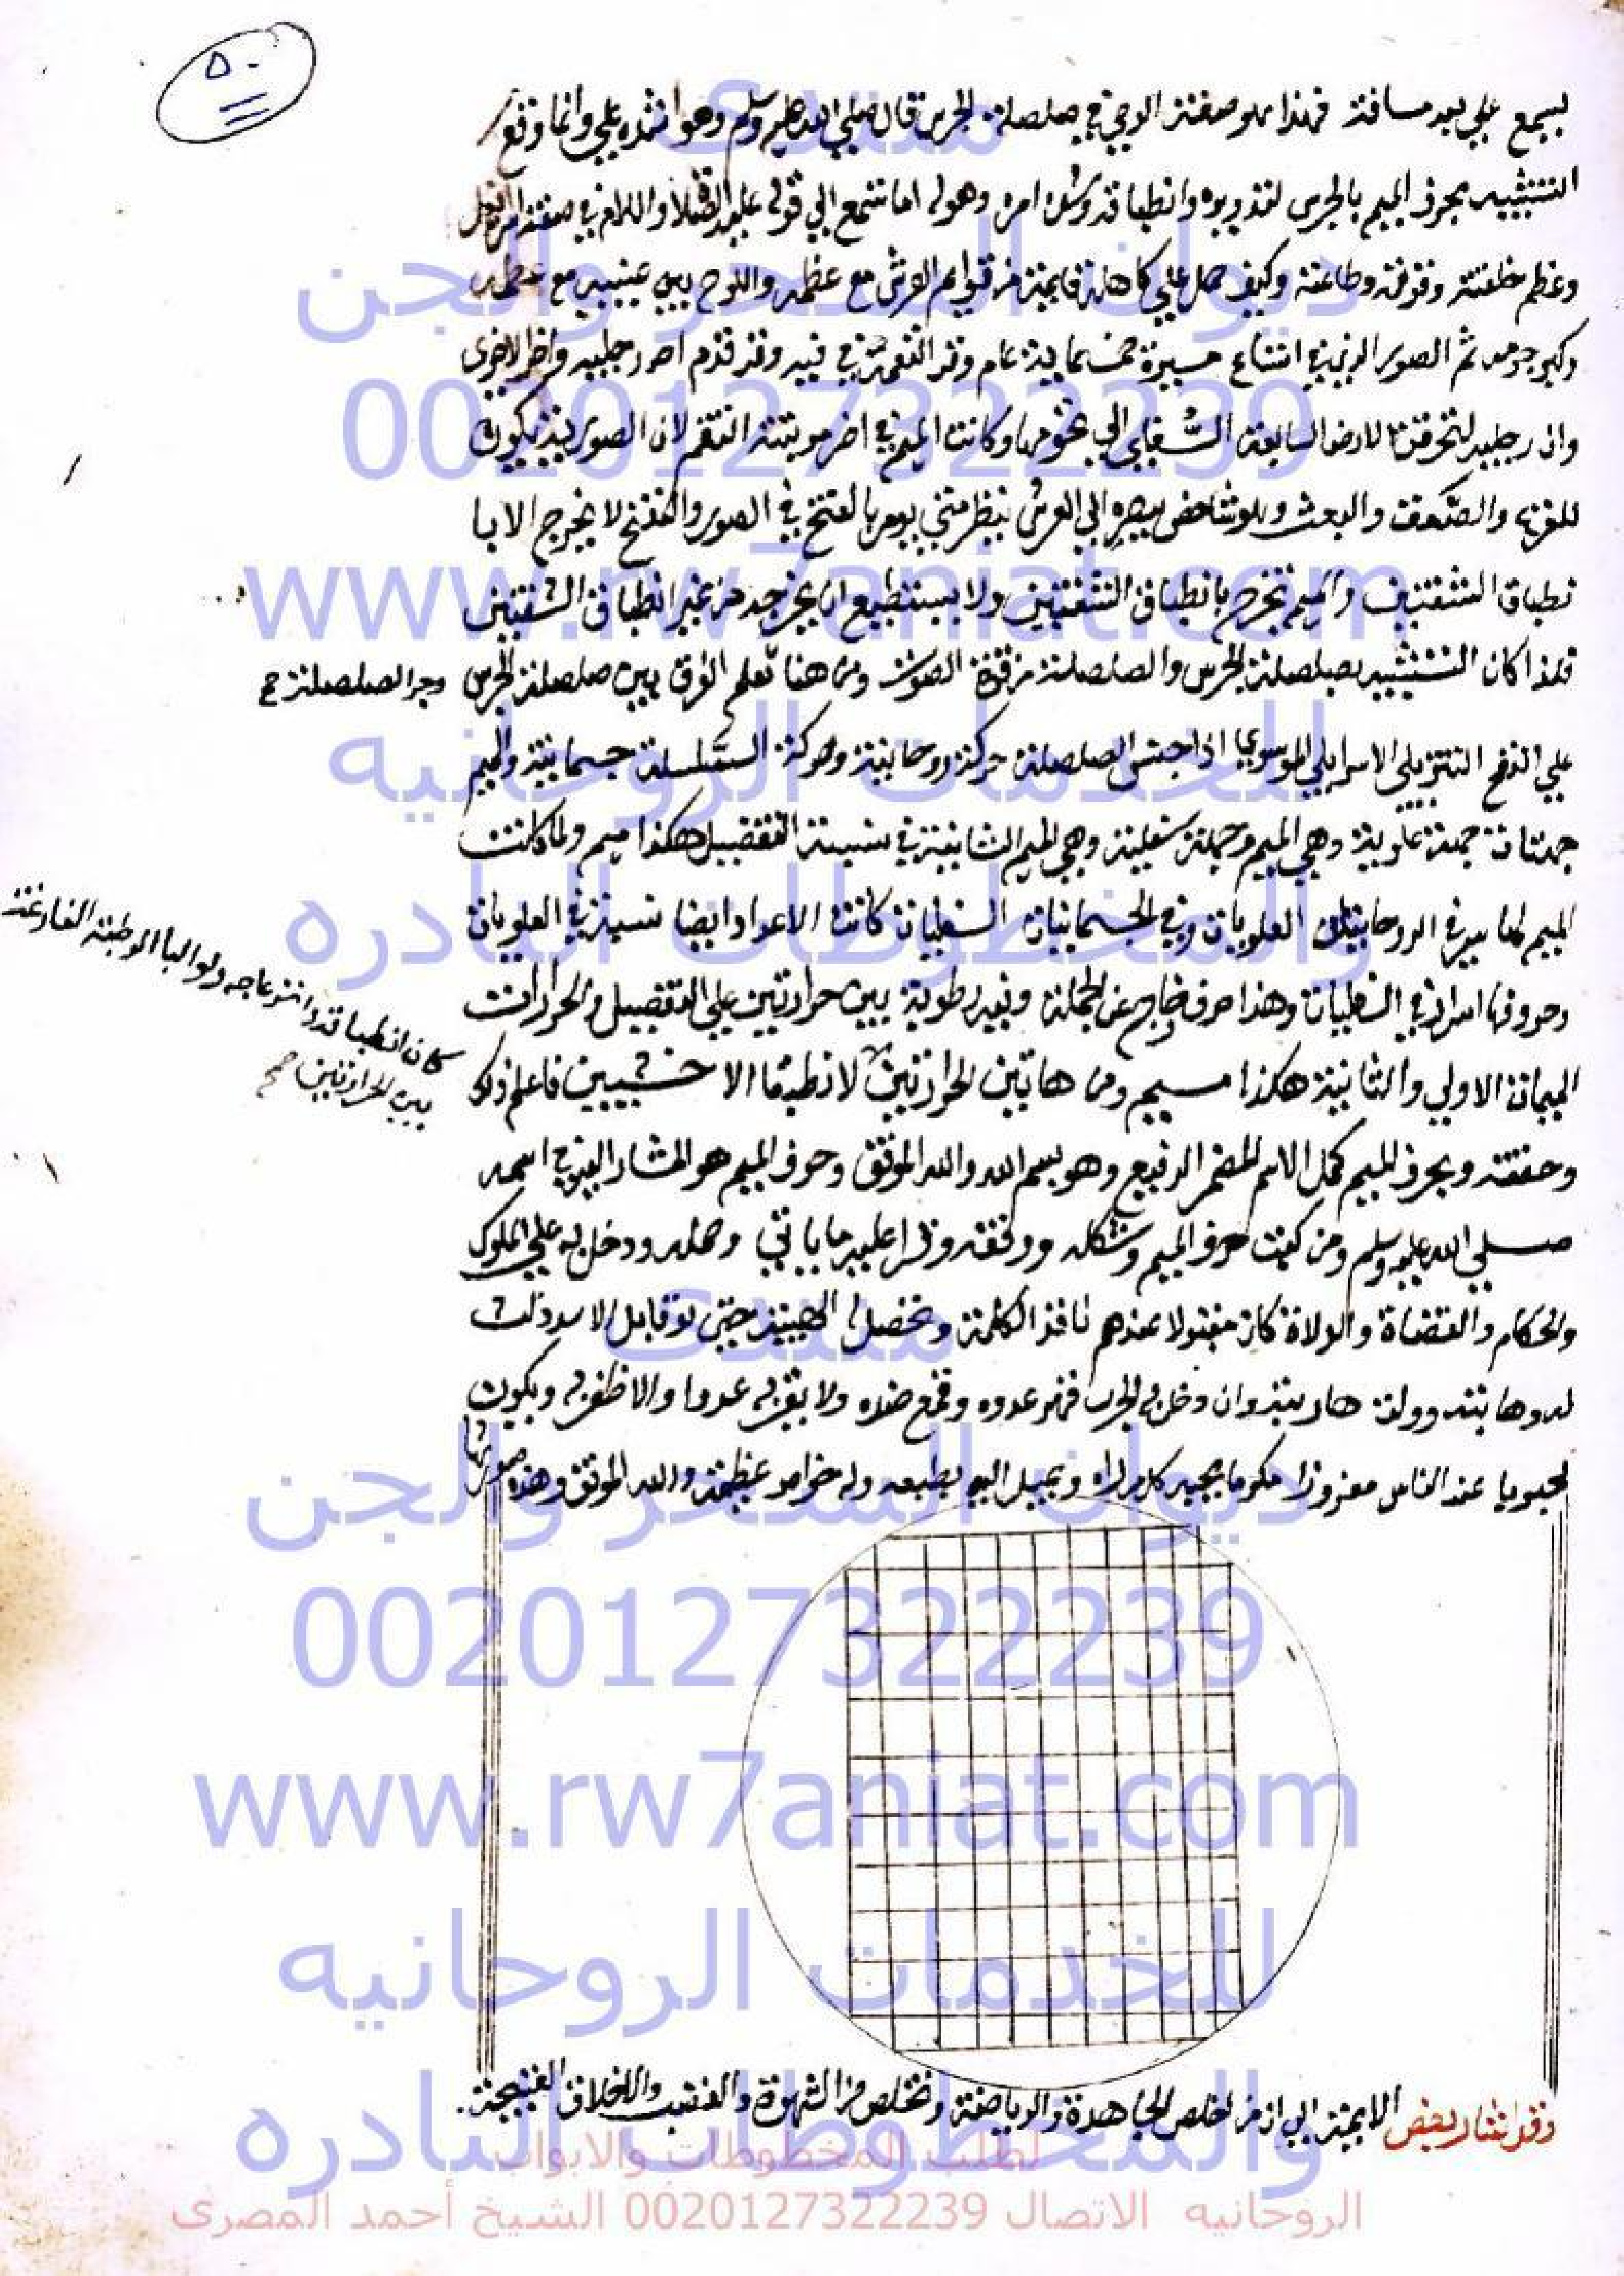 ٥٠
يسمع علي بعد مسافة فهذا هو صفة الوحي في صلصلة الجرس قال صلي الله عليه وسلم وهو اشده علي وانما وقع
التشبيه بحرف الميم بالجرس لتدويره وانطباقه وشدة امره وهوله اما تسمع الي قوله عليه الصلاة والسلام في صفة
وعظم خلقته وقوته وطاعته وكيف حمل علي كاهله قايمة من قوايم العرش مع عظمه واللوح بين عينيه مع عظمه
وكبر جرمه ثم الصور الذي في اتساع مسيرة خمسماية عام وقد التقمه في فيه وقد قدم احد رجليه واخر الاخري
وان رجليه لتخرقت الارض السابعة السفلي الي تخومها وكانت الميم في اخر مرتبة النقم لان الصور فيه يكون
للفزع والصعق والبعث وهو شاخص ببصره الي العرش ينظر متي يومر بالنفخ في الصور والنفخ لا يخرج الا با
نطباق الشفتين والميم تخرج بانطباق الشفتين ولا يستطيع ان يخرجه من غير انطباق الشفتين
فلذا كان التشبيه بصلصلة الجرس والصلصلة من قوة الصوت ومن هنا تعلم الفرق بين صلصلة الجرس وجر الصلصلة
علي النفخ التنزيلي الاسرايلي الموسوي اذا جنس الصلصلة حركة روحانية وحركة السلسلة جسمانية والميم
جهتان جهة علوية وهي الميم وجهة سفلية وهي الميم الثانية في نسبة التفصيل هكذا ميم ولما كانت
الميم لها سر في الروحانيات العلويات وفي الجسمانيات السفليات كانت الاعداد ايضا نسبة في العلويات
وحروفها اسرار في السفليات وهذا حرف خارج عن الجملة وفيه رطوبة بين حرارتين علي التفصيل والحرارات
الميمان الاولي والثانية هكذا ميم ومن هاتين الحرارتين لانطبقا الاخشبين فاعلم ذلك
كان انطباقه وانزعاجه ولو اليا الرطبة الفارغة
بين الحرارتين صح
وحققه وبحرف الميم كمل الاسم المضمر الرفيع وهو بسم الله والله الموفق وحرف الميم هو المشار اليه في اسمه
صلي الله عليه وسلم ومن كتب حرف الميم وشكله ووفقه وقرا عليه ما ياتي وحمله ودخل به علي الملوك
والحكام والقضاة والولاة كان مقبولا عندهم نافذ الكلمة وتحصل له الهيبة حتي لو قابل الاسد ذلت
له وهابته وولت هاربة وان دخل به الحرب قهر عدوه وقمع ضده ولا يقربه عدوا والا ظفر به ويكون
محبوبا عند الناس معزوزا مكرما يحبه كل من راه ويميل اليه بطبعه وله خواص عظيمة والله الموفق وهذه صورتها
وقد اشار بعض الايمة الي ان من اخلص المجاهدة والرياضة وتخلص من الشهوة والغضب والاخلاق القبيحة.
منتدى
ديوان السحر والجن
0020127322239
www.rw7aniat.com
للخدمات الروحانيه
والمخطوطات النادره
منتدى
ديوان السحر والجن
0020127322239
www.rw7aniat.com
للخدمات الروحانيه
والمخطوطات النادره
لطلب المخطوطات والابواب
الروحانيه الاتصال 0020127322239 الشيخ أحمد المصرى